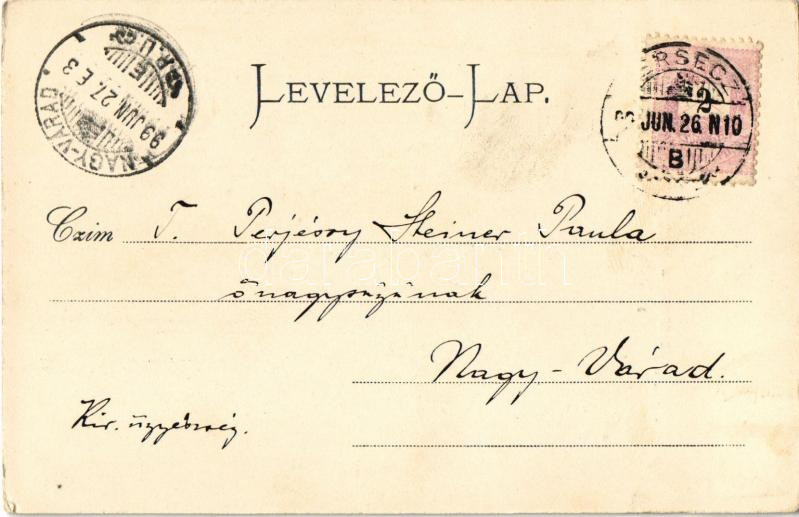 LEVELEZŐ-LAP.
NAGY-VÁRAD
99 JUN. 27. E 3
ERSECZ
2
JUN. 26. N10
B
Czim T. Perjéssy Steiner Paula
őnagyságának
Nagy-Várad.
Kir. ügyészség.
darabanth